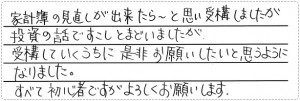 家計簿の見直しが出来たら～と思い受構しましたが
投資の話ですこしとまどいましたが
受構していくうちに 是非お願いしたいと思うように
なりました。
すべて初心者ですがよろしくお願いします.